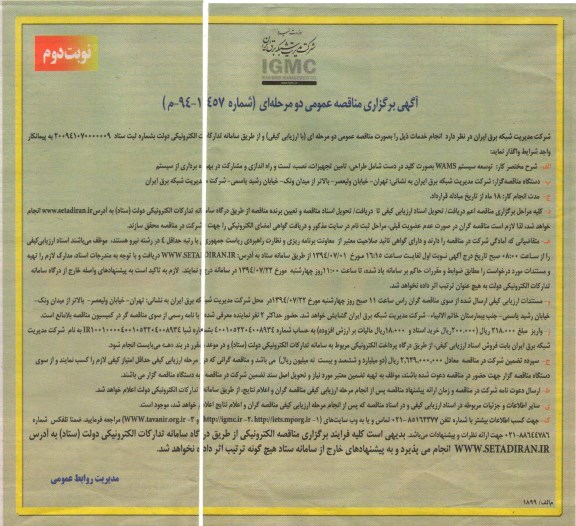 نوبت دوم
شرکت مدیریت شبکه برق ایران
IGMC
آگهی برگزاری مناقصه عمومی دو مرحله‌ای (شماره ۱ ۴۵۷-۹۴-م)
شرکت مدیریت شبکه برق ایران در نظر دارد انجام خدمات ذیل را بصورت مناقصه عمومی دو مرحله ای (با ارزیابی کیفی) و از طریق سامانه تدارکات الکترونیکی دولت بشماره ثبت ستاد ۲۰۰۹۴۱۰۷۰۰۰۰۰۰۹ به پیمانکار
واجد شرایط واگذار نماید:
الف- شرح مختصر کار: توسعه سیستم WAMS بصورت کلید در دست شامل طراحی، تامین تجهیزات، نصب، تست و راه اندازی و مشارکت در بهره برداری از سیستم
ب- دستگاه مناقصه‌گزار: شرکت مدیریت شبکه برق ایران به نشانی: تهران- خیابان ولیعصر- بالاتر از میدان ونک- خیابان رشید یاسمی- شرکت مدیریت شبکه برق ایران
ج- مدت انجام کار: ۱۸ ماه از تاریخ مبادله قرارداد.
کلیه مراحل برگزاری مناقصه اعم دریافت/ تحویل اسناد ارزیابی کیفی تا دریافت/ تحویل اسناد مناقصه و تعیین برنده مناقصه از طریق درگاه سامانه تدارکات الکترونیکی دولت (ستاد) به آدرس www.setadiran.ir انجام
خواهد شد، لذا لازم است مناقصه گران در صورت عدم عضویت قبلی، مراحل ثبت نام در سایت مذکور و دریافت گواهی امضای الکترونیکی را جهت شرکت در مناقصه محقق سازند.
متقاضیانی که آمادگی شرکت در مناقصه را دارند و دارای گواهی تائید صلاحیت معتبر از معاونت برنامه ریزی و نظارت راهبردی ریاست جمهوری با رتبه حداقل ۴ در رشته نیرو هستند، موظف می‌باشند اسناد ارزیابی‌کیفی
را از ساعت ۰۸:۰۰ صبح تاریخ درج آگهی نوبت اول لغایت ساعت ۱۶:۱۵ مورخ ۱۳۹۴/۰۷/۰۱ از طریق سامانه ستاد به آدرس: WWW.SETADIRAN.IR دریافت و با توجه به مندرجات اسناد، مدارک لازم را تهیه
و مستندات مورد درخواست را مطابق ضوابط و مقررات حاکم بر سامانه یاد شده، تا ساعت ۱۱:۰۰ روز چهارشنبه مورخ ۱۳۹۴/۰۷/۲۲ در سامانه درج نمایند. لازم به تاکید است به پیشنهادهای واصله خارج از درگاه سامانه
تدارکات الکترونیکی دولت به هیچ عنوان ترتیب اثر داده نخواهد شد.
مستندات ارزیابی کیفی ارسال شده از سوی مناقصه گران راس ساعت ۱۱ صبح روز چهارشنبه مورخ ۱۳۹۴/۰۷/۲۲ در محل شرکت مدیریت شبکه برق ایران به نشانی: تهران- خیابان ولیعصر- بالاتر از میدان ونک-
خیابان رشید یاسمی- جنب بیمارستان خاتم الانبیاء- شرکت مدیریت شبکه برق ایران گشایش خواهد شد. حضور حداکثر ۲ نفر نماینده معرفی شده با نامه رسمی از سوی مناقصه گر در کمیسیون مناقصه بلامانع است.
و- واریز مبلغ ۲۱۸.۰۰۰ ریال (۲۰۰.۰۰۰ ریال خرید اسناد و ۱۸.۰۰۰ ریال مالیات بر ارزش افزوده) به حساب شماره
به نام شرکت مدیریت
شبکه برق ایران بابت فروش اسناد ارزیابی کیفی، از طریق درگاه پرداخت الکترونیکی مربوط به سامانه تدارکات الکترونیکی دولت (ستاد) و در موعد مقرر در بند «ه» می‌بایست انجام شود.
سپرده تضمین شرکت در مناقصه معادل ۲.۶۳۹.۰۰۰.۰۰۰ ریال می باشد و مناقصه گرانی که در مرحله ارزیابی کیفی حداقل امتیاز کیفی لازم را کسب نمایند و از سوی
دستگاه مناقصه گزار جهت حضور در مناقصه دعوت شده باشند، موظف به تهیه تضمین معتبر مورد نیاز و تحویل اصل سند تضمین شرکت در مناقصه به دستگاه مناقصه گزار می باشند.
ارسال دعوت نامه شرکت در مناقصه و زمان ارائه پیشنهاد مناقصه پس از انجام مرحله ارزیابی کیفی مناقصه گران و اعلام نتایج، از طریق سامانه تدارکات الکترونیکی دولت اعلام خواهد شد.
سایر اطلاعات و جزئیات مربوطه در اسناد ارزیابی کیفی و در اسناد مناقصه که پس از انجام مرحله ارزیابی کیفی مناقصه گران و اعلام نتایج اعلام خواهد شد، موجود است.
جهت کسب اطلاعات بیشتر با شماره تلفن ۸۵۱۶۲۳۷۷-۰۲۱ تماس و یا به وب سایت‌های (۱- http://iets.mporg.ir ۲- http://igmc.ir و ۳- WWW.tavanir.org.ir) مراجعه فرمایید. ضمنا تلفکس شماره
۸۸۶۴۴۷۸۶-۰۲۱ جهت ارائه نظرات و پیشنهادات می‌باشد. بدیهی است کلیه فرایند برگزاری مناقصه الکترونیکی از طریق درگاه سامانه تدارکات الکترونیکی دولت (ستاد) به آدرس
WWW.SETADIRAN.IR انجام می پذیرد و به پیشنهادهای خارج از سامانه ستاد هیچ گونه ترتیب اثر داده نخواهد شد.
مدیریت روابط عمومی
م/الف: ۱۸۹۹